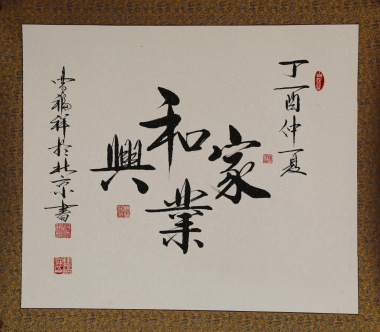 丁酉仲夏
家和業興
福祥於北京書